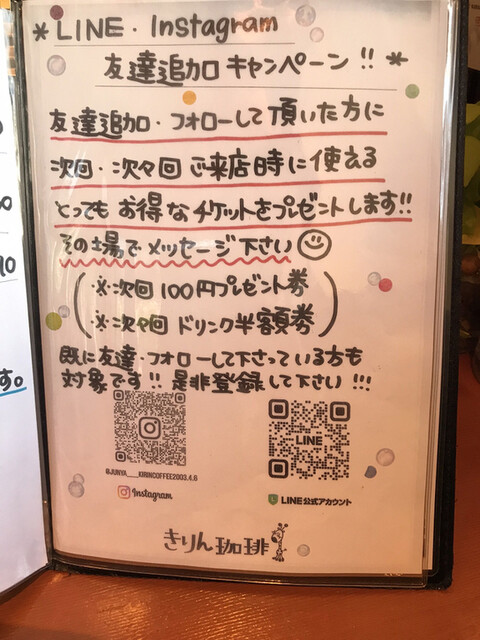 *LINE・Instagram
友達追加キャンペーン!!*
友達追加・フォローして頂いた方に
次回・次々回ご来店時に使える
とってもお得なチケットをプレゼントします!!
その場でメッセージ下さい
(※次回 100円プレゼント券
※次々回 ドリンク半額券)
既に友達・フォローして下さっている方も
対象です!! 是非登録して下さい!!!
LINE
@JUNYA___KIRINCOFFEE2003.4.6
Instagram
LINE公式アカウント
きりん珈琲
10
す。